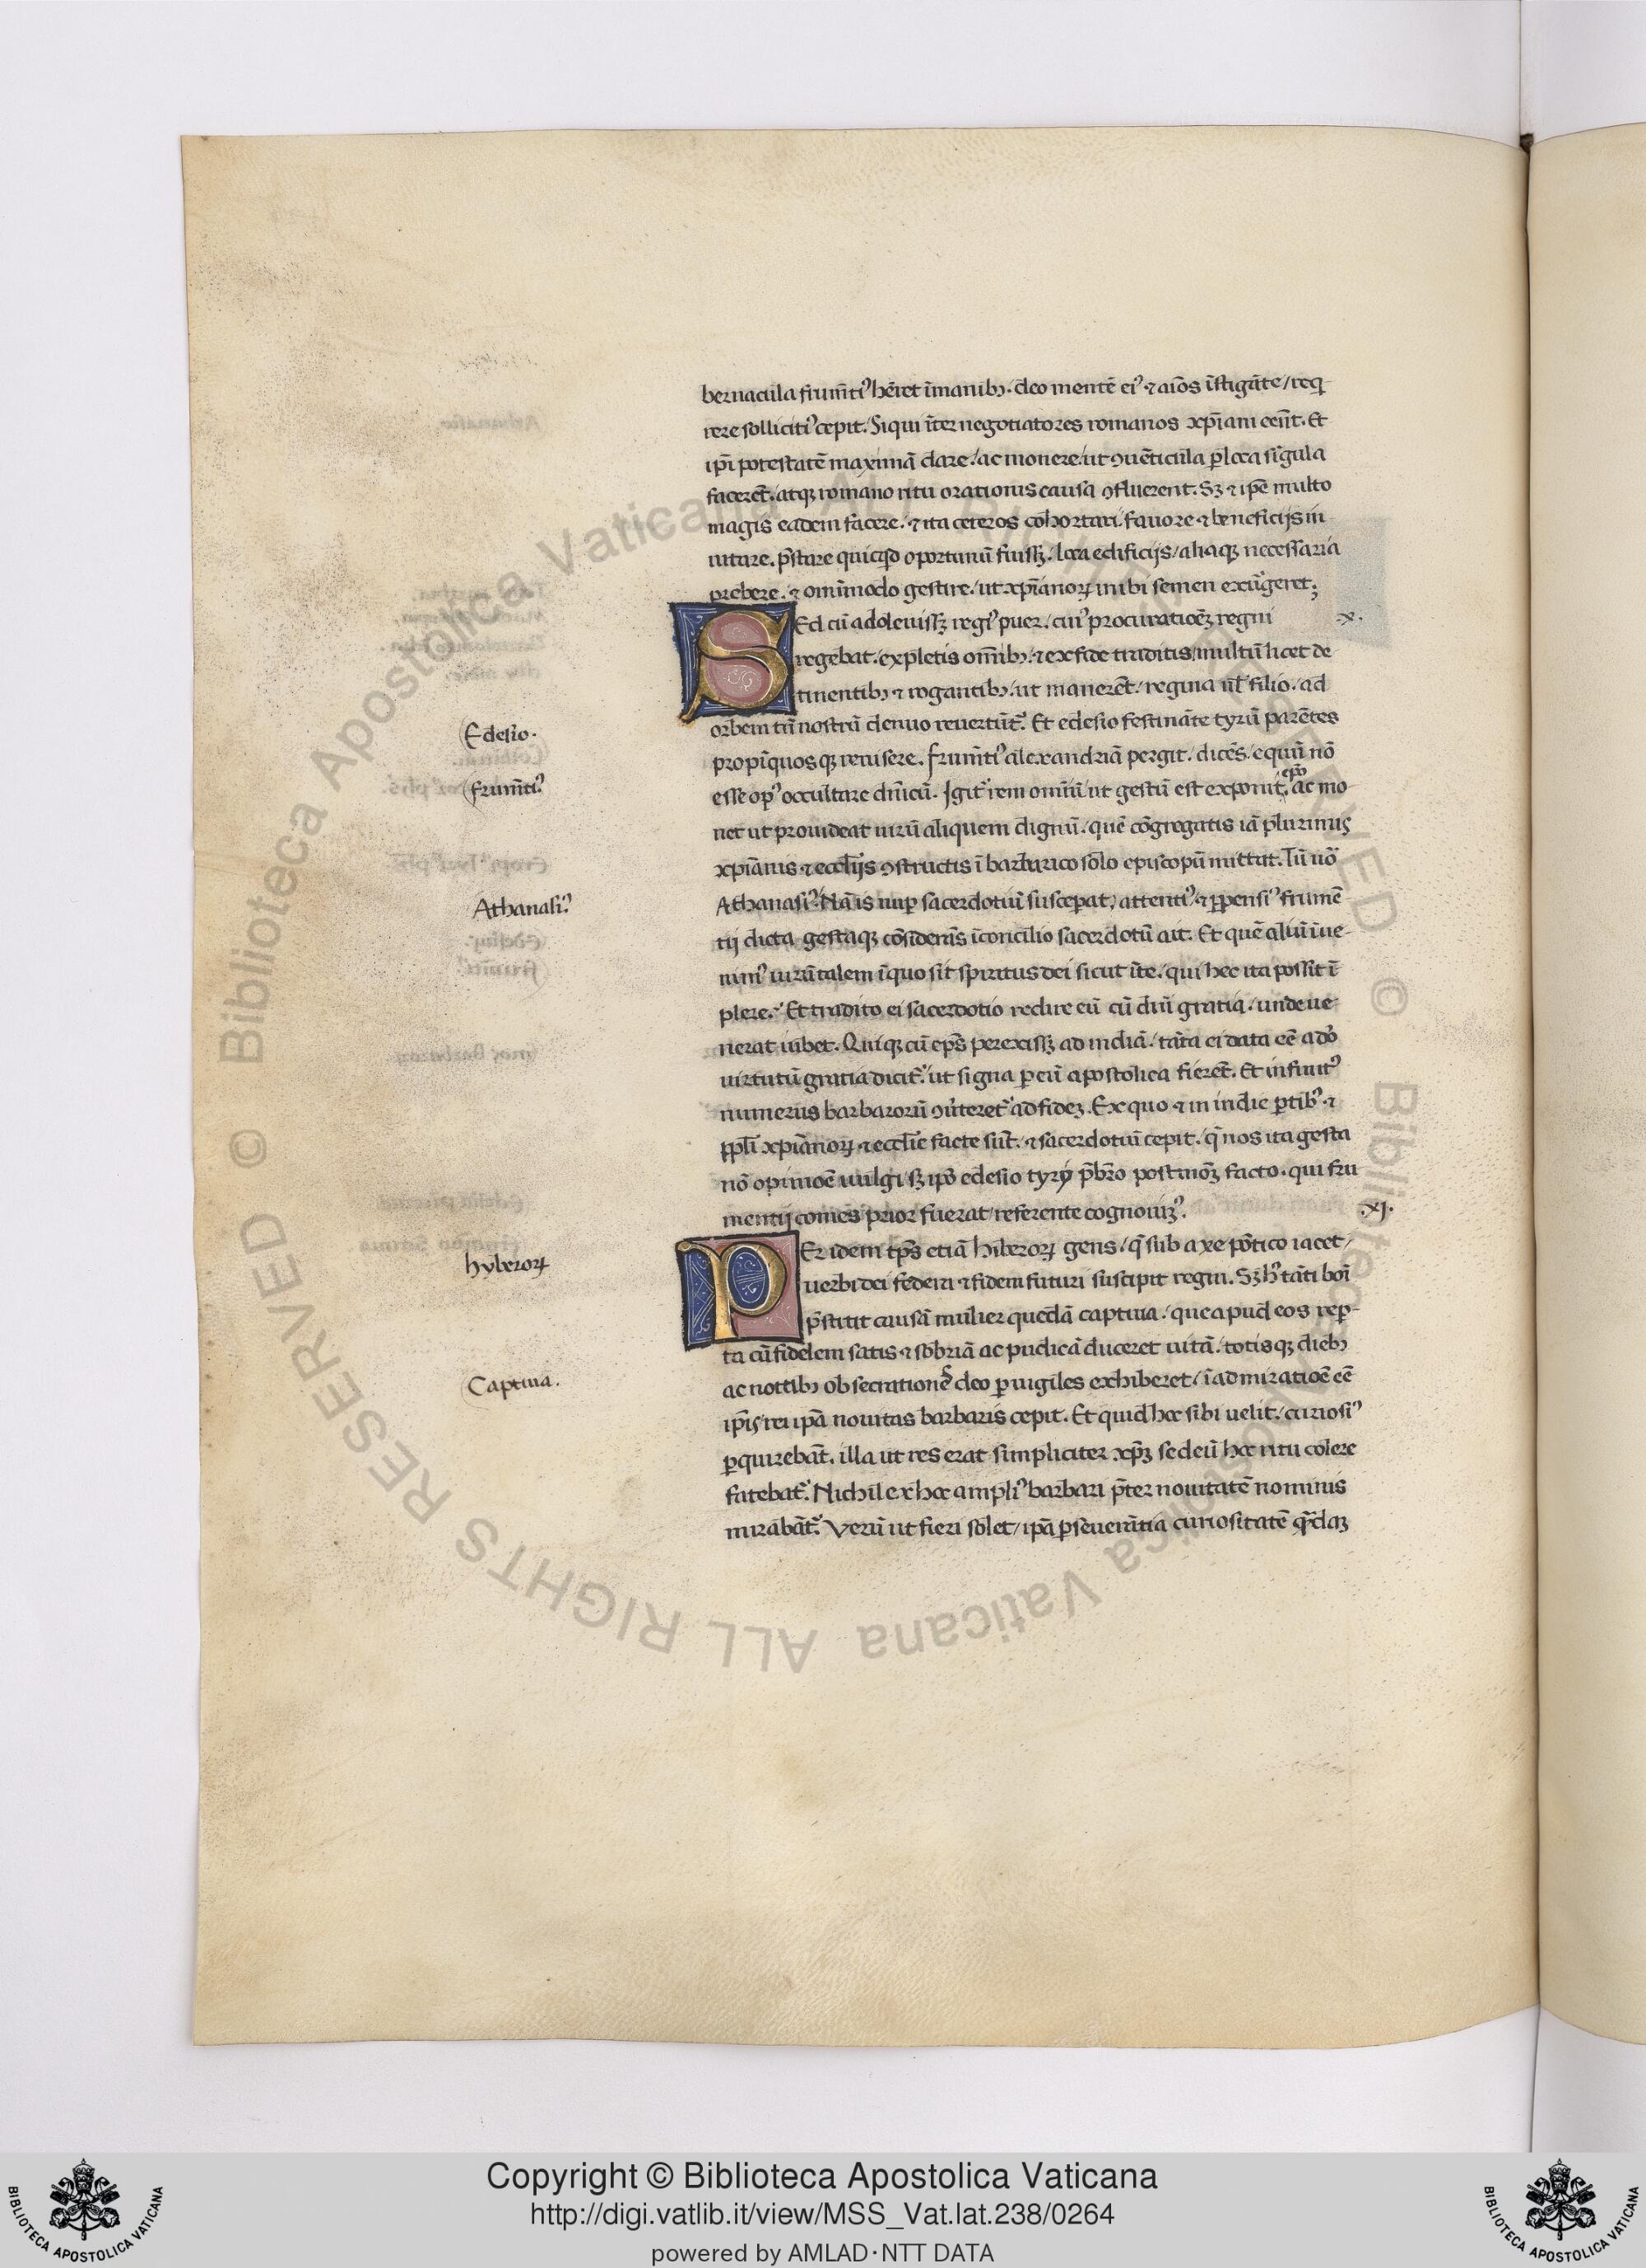 bernacula frum̄ti᾽ hēret īmanibꝫ. deo mentē ei᾽ ⁊ aīos īstigāte / req̄
rere solliciti᾽ cepit. Siqui īter negotiatores romanos xp̄iani eēnt. Et
ip̄i potestatē maximā dare / ac monere / ut ꝯuēticula ꝑ loca sīgula
facerēt. atqꝫ romano ritu orationis causa ꝯfluerent. Sꝫ ⁊ ip̄e multo
magis eadem facere. ⁊ ita ceteros cohortari / fauore ⁊ beneficijs in
uitare. p̄stare quicq̄d oportunū fuissꝫ. loca edificijs / aliaqꝫ necessaria
prebere. ⁊ om̄imodo gestire. ut xp̄ianoꝝ inibi semen exūgeret;
SEd cū adoleuissꝫ regi᾽ puer. cui᾽ procuratioēꝫ regni .x.
regebat. expletis om̄ibꝫ. ⁊ ex fide traditis / multū licet de
tinentibꝫ ⁊ rogantibꝫ / ut manerēt. regina ul̄ filio. ad
orbem tn̄ nostrū denuo reuertūt᾽. Et edesio festināte tyrū parētes
Edesio.
propīquosqꝫ reuisere. frum̄ti᾽ alexandriā pergit. dicēs. equū nō
frum̄ti᾽
esse op᾽ occultare dn̄icū. Igit᾽ rem omēm ut gestū est exponit ep̄o. ac mo
net ut prouideat uirū aliquem dignū. quē cōgregatis iā plurimis
xp̄ianis ⁊ eccl̄ijs ꝯstructis ī barbarico solo episcopū mittat. Tū uō
Athanasi᾽. Nā is nuꝑ sacerdotiū susceperat, attenti᾽ ⁊ ꝓpensi᾽ frumē
Athanasi᾽
tij dicta gestaqꝫ cōsiderās ī concilio sacerdotū ait. Et quē aliū īue-
nim᾽ uirū talem īquo sit spiritus dei sicut īte. qui hec ita possit ī
plere. Et tradito ei sacerdotio redire eū cū dn̄i gratia. unde ue
nerat iubet. Qui qꝫ cū ep̄s perexissꝫ ad indiā. tāta ei data eē ado̅
uirtutū gratia dicit᾽. ut signa ꝑ eū apostolica fierēt. Et infinit᾽
numerus barbarorū ꝯūteret᾽ ad fideꝫ. Ex quo ⁊ in indie ꝑtibꝰ ⁊
ꝓpli xp̄ianoꝝ ⁊ eccl̄ie facte sūt. ⁊ sacerdotiū cepit. q̄ nos ita gesta
nō opinioē uulgi / sꝫ ip̄o edesio tyrij p̄bro postmōꝫ facto. qui fru
mentij comes prior fuerat / referente cognouim᾽. .xj.
PEr idem tp̄s etiā hiberoꝝ gens / q̄ sub axe pōtico iacet /
hyberoꝝ
uerbi dei federa ⁊ fidem futuri suscipit regni. Sꝫ h᾽ tāti boī
p̄stitit causā mulier quedā captiua. que apud eos rep̄-
ta cū fidelem satis ⁊ sobriā ac pudicā duceret uitā. totisqꝫ diebꝫ
Captiua.
ac nottibꝫ obsecrationes deo ꝑuigiles exhiberet / ī admiratioē eē
ip̄is / rei ip̄a nouitas barbaris cepit. Et quid hoc sibi uelit. curiosi᾽
ꝑquirebāt. illa ut res erat simpliciter xp̄ꝫ se deū hoc ritu colere
fatebat᾽. Nichil ex hoc ampli᾽ barbari p̄ter nouitatē nominis
mirabāt᾽. Verū ut fieri solet / ip̄a ꝑseuerātia curiositatē q̄daꝫ
Copyright © Biblioteca Apostolica Vaticana
http://digi.vatlib.it/view/MSS_Vat.lat.238/0264
powered by AMLAD·NTT DATA